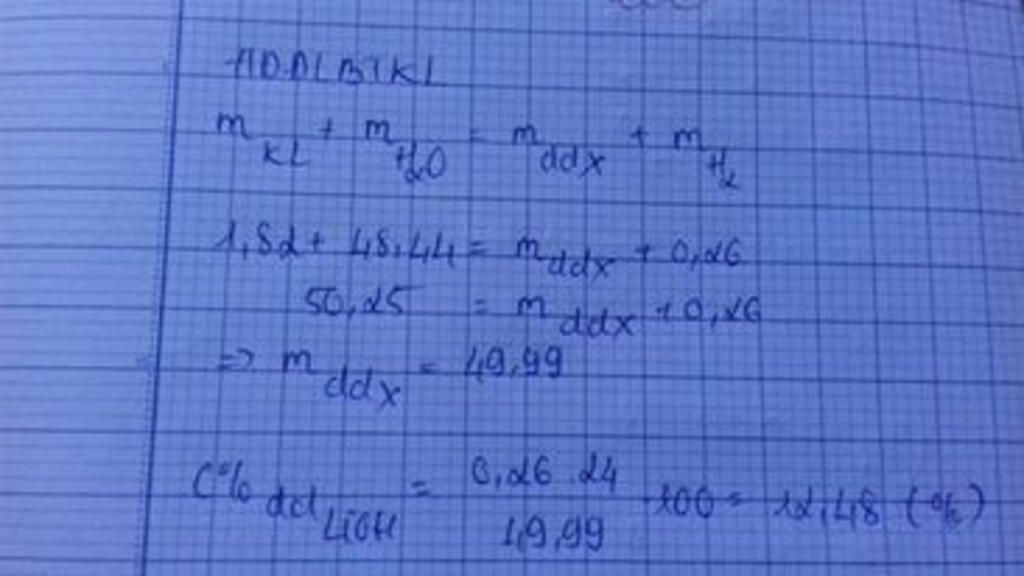 ADĐLBTKL
m KL + m H2O = m ddX + m H2
1,82 + 48,44 = m ddX + 0,26
50,25 = m ddX + 0,26
=> m ddX = 49,99
C% dd LiOH = 0,26.24 / 49,99 . 100 = 12,48 (%)